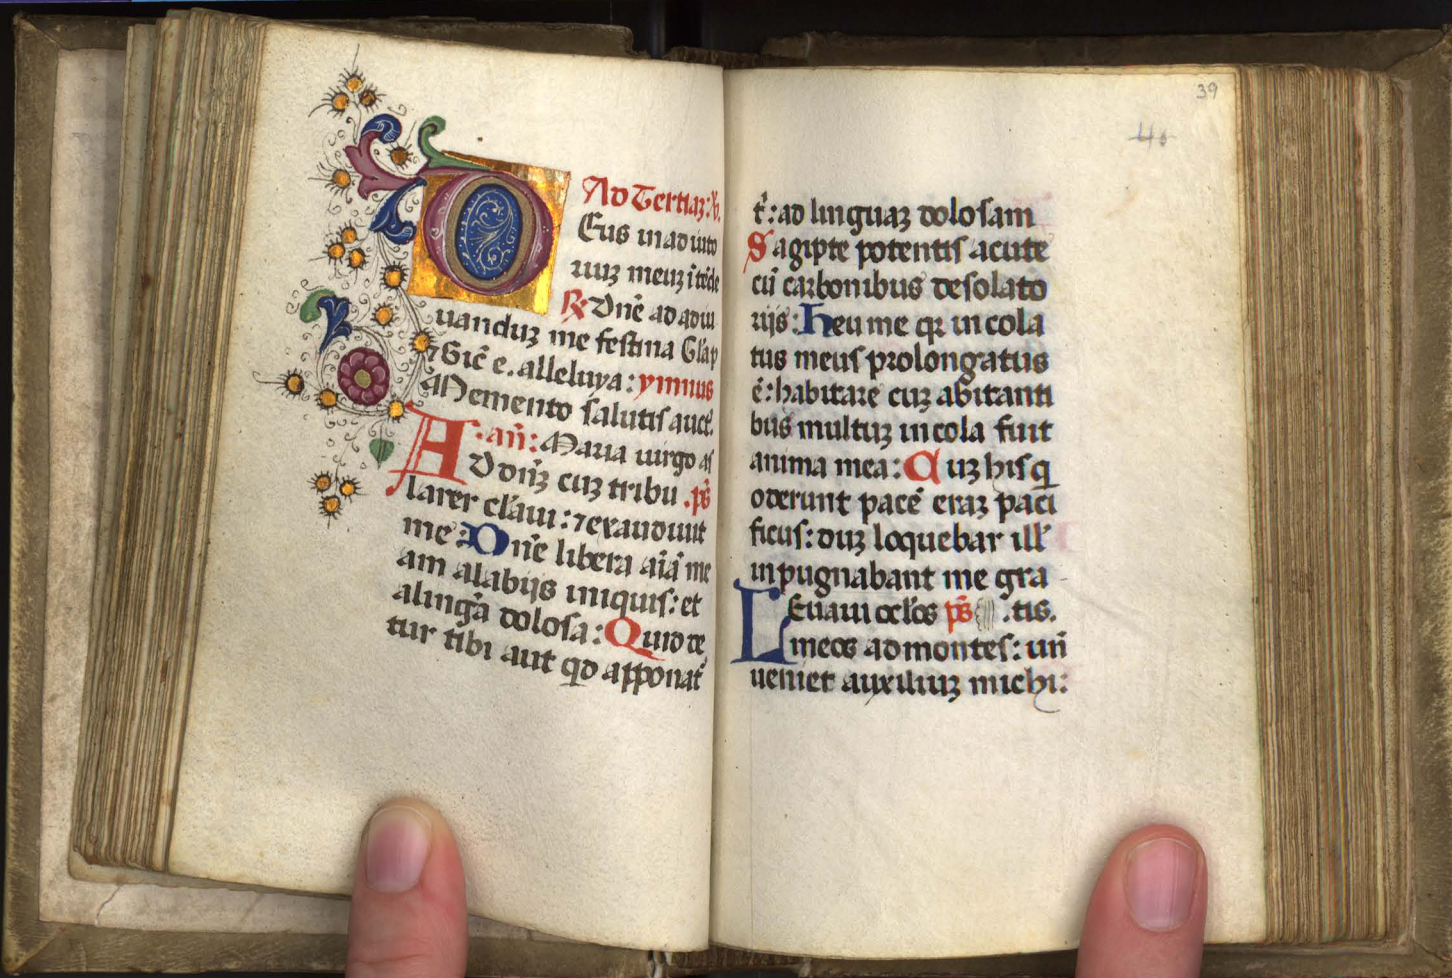 Ad Tertiaz: ℣.
DEus in adiuto
riuz meuz ītēde
℟ Dn̄e ad adiu
uanduz me festina Gl̄a p̄
⁊ Sic̄ e. alleluya: ymnus
Memento salutis auct.
.an̄: Maria uirgo as
AD dom̄z cuz tribu .ps̄
larer cl̄aui: ⁊ exaudiuit
me: Dn̄e libera aīa me
am alabijs iniquis: et
alinḡa dolosa: Quid de
tur tibi aut qd apponat̄
39
40
t̄: ad linguaz dolosam
Sagipte potentis acute
cū carbonibus desolato
rijs: Heu me qr incola
tus meus prolongatus
ē: habitare cuz abitanti
bus multuz incola fuit
anima mea: Cuz his q
oderunt pacē eraz paci
ficus: duz loquebar ill̄
inpugnabant me gra
LEuaui ocl̄os ps̄ .tis.
meos ad montes: un̄
ueniet auxiliuz michi: